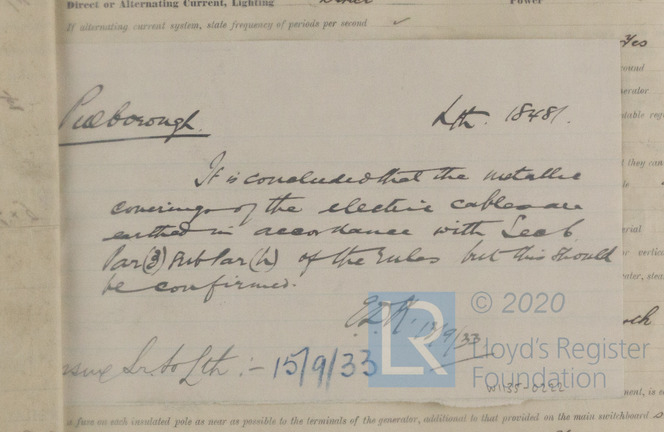 Direct or Alternating Current, Lighting Power
If alternating current system, state frequency of periods per second
Yes
ound
enerator
Pulborough. Lth. 18481.
It is concluded that the metallic
they can
coverings of the electric cables are
earthed in accordance with Sec 6
Par (3) sub Par (h) of the Rules but this should
be confirmed.
LR
© 2020
Lloyd's Register
Foundation
15/9/33
W1135-0222
a fuse on each insulated pole as near as possible to the terminals of the generator, additional to that provided on the main switchboard